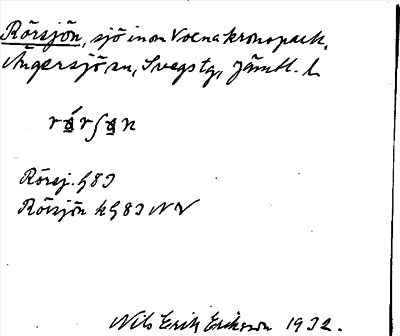 Rörsjön, sjö inom Voxna kronopark,
Ängersjö sn, Svegs tg, Jämtl. l.
Rörsj. G83
Rörsjön k G83 NV
Nils Erik Erikson 1932.